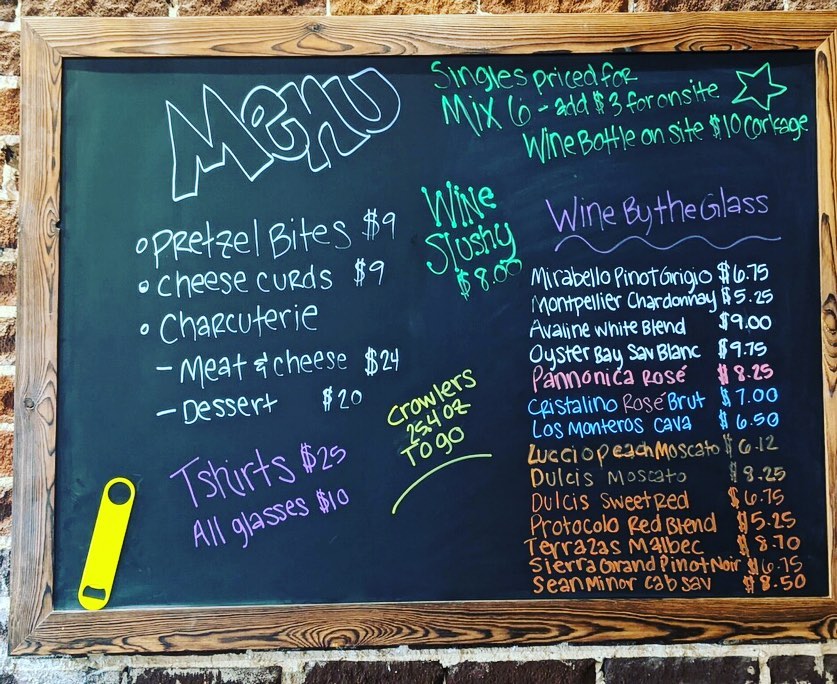 Menu
Singles priced for
Mix 6 - add $3 for onsite
Wine Bottle on site $10 Corkage
Pretzel Bites $9
Cheese curds $9
Charcuterie
- Meat & cheese $24
- Dessert $20
Tshirts $25
All glasses $10
Wine
Slushy
$8.00
Crowlers
25.4 oz
To go
Wine By the Glass
Mirabello Pinot Grigio $6.75
Montpellier Chardonnay $5.25
Avaline White Blend $9.00
Oyster Bay Sav Blanc $9.75
Pannonica Rosé $8.25
Cristalino Rosé Brut $7.00
Los Monteros Cava $6.50
Luccio peach Moscato $6.12
Dulcis Moscato $8.25
Dulcis Sweet Red $6.75
Protocolo Red Blend $5.25
Terrazas Malbec $8.70
Sierra Grand Pinot Noir $6.75
Sean Minor Cab Sav $8.50